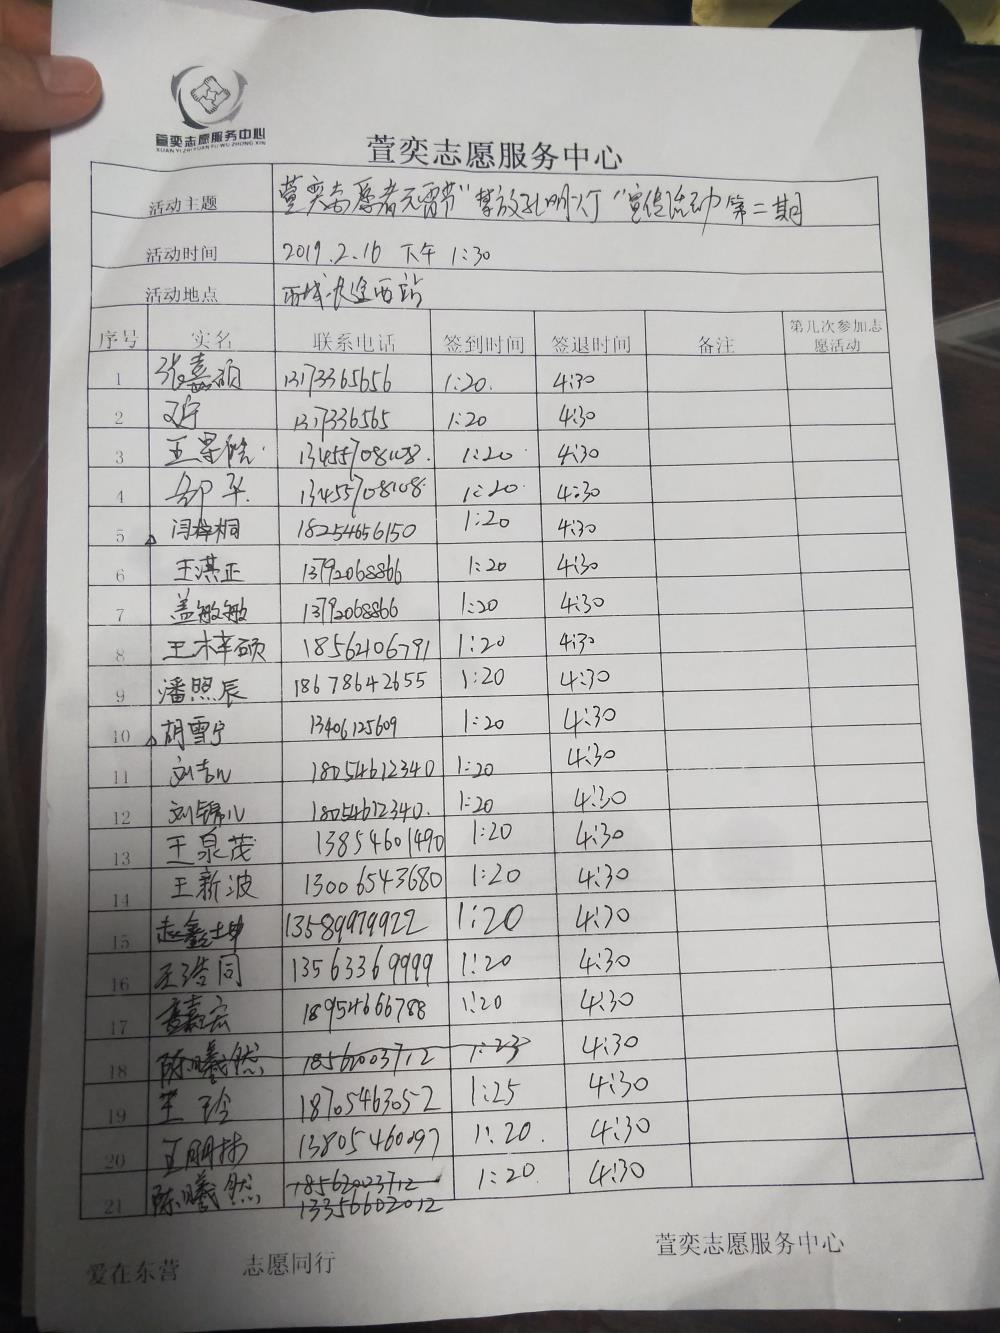 萱奕志愿服务中心
XUAN YI ZHI YUAN FU WU ZHONG XIN
萱奕志愿服务中心
活动主题 萱奕志愿者元宵节"禁放孔明灯"宣传活动 第二期
活动时间 2019.2.16 下午 1:30
活动地点 西城 西站
序号 实名 联系电话 签到时间 签退时间 备注 第几次参加志愿活动
1 张嘉硕 13173365656 1:20. 4:30
2 1317336565 1:20 4:30
3 王 皓 13455708108. 1:20 4:30
4 邹平 13455708108 1:20 4:30
5 闫梓桐 18254656150 1:20 4:30
6 王淇正 13792068866 1:20 4:30
7 盖敏敏 13792068866 1:20 4:30
8 王梓硕 18562106791 1:20 4:30
9 潘照辰 18678642655 1:20 4:30
10 胡雪宁 13406125609 1:20 4:30
11 刘 18054612340 1:20 4:30
12 刘锦 18054612340. 1:20 4:30
13 王泉茂 13854601490 1:20 4:30
14 王新波 13006543680 1:20 4:30
15 赵鑫坤 13589979922 1:20 4:30
16 王浩同 13563369999 1:20 4:30
17 嘉宏 18954666788 1:20 4:30
18 陈曦然 18562003712 1:23 4:30
19 玲 18705463052 1:25 4:30
20 王朋 13805460097 1:20. 4:30
21 陈曦然 18562003712 1:20. 4:30
13356602012
爱在东营 志愿同行 萱奕志愿服务中心